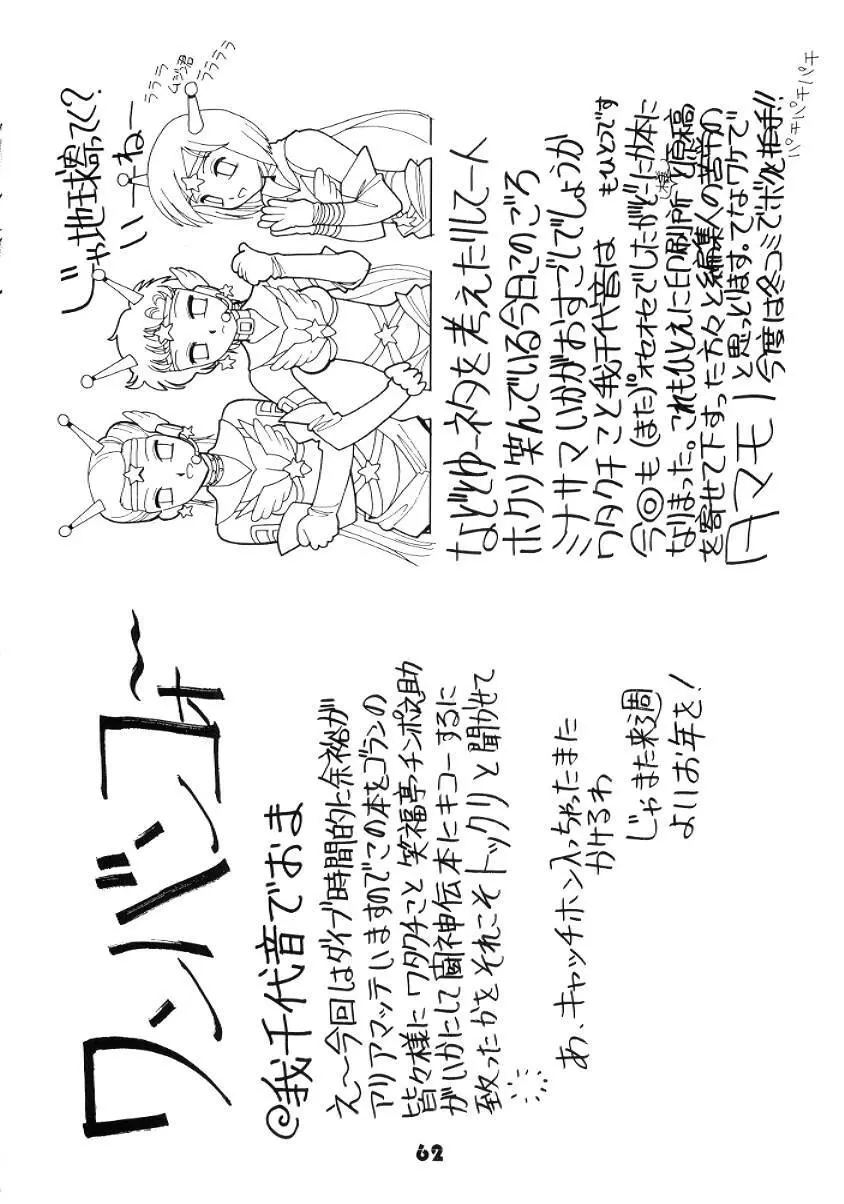 ワンバンコォ〜
@我千代音でおま
え〜今回はダイブ時間的に余裕が
アリアマッテいますのでこの本をゴランの
皆々様に ワタクチこと 笑福亭チンポ之助
がいかにして 闘神伝本にキコーするに
致ったかをそれこそ トックリと聞かせて
あ、キャッチホン入っちゃったまた
かけるわ
じゃまた来週
よいお年を!
じゃ地球捨ってく?
いーねー
ラララ
ムジン君
ララララ
などとゆーネタを考えたりして一人
ホクリ笑んでいる今日このごろ
ミナサマいかがおすごしでしょうか
ワタクチこと我千代音は もひとつです
今回も(また)オセオセでしたがどーにか本に
なりまった。これもひとえに印刷所と原稿
を寄せて下すった方々と編集人の苦労の
タマモノ
と思っとります。てなワケで
今度は冬コミでボクと拍手!!
パチパチパチパチ
62